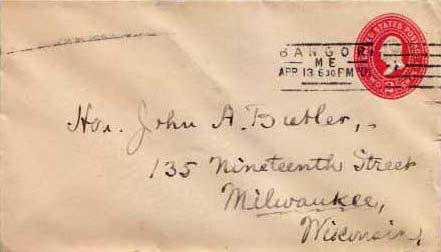 BANGOR
ME
APR 13 6 30 PM '01
UNITED STATES POSTAGE
Hon. John A. Butler,
135 Nineteenth Street
Milwaukee,
Wisconsin,